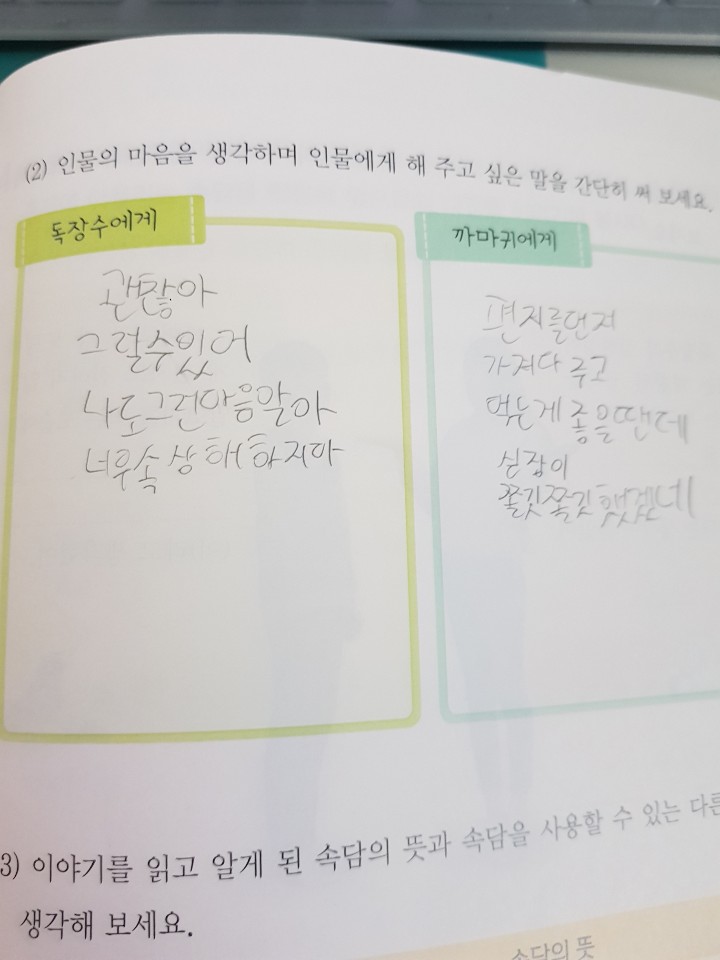 (2) 인물의 마음을 생각하며 인물에게 해 주고 싶은 말을 간단히 써 보세요.
독장수에게
괜찮아
그럴수있어
나도그런마음알아
너무속상해하지마
까마귀에게
편지를먼저
가져다 주고
먹는게 좋을땐데
심장이
쫄깃쫄깃했겠네
3) 이야기를 읽고 알게 된 속담의 뜻과 속담을 사용할 수 있는 다른
생각해 보세요.
속담의 뜻